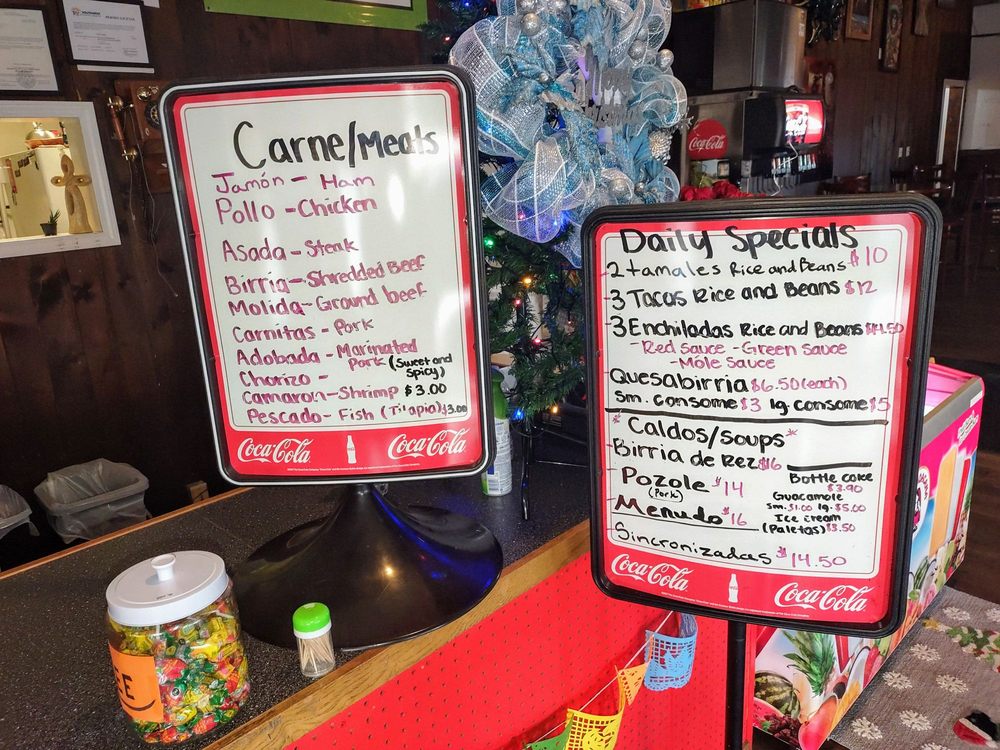 Carne/Meats
Jamón - Ham
Pollo - Chicken
Asada - Steak
Birria - Shredded Beef
Molida - Ground beef
Carnitas - Pork
Adobada - Marinated
Pork (Sweet and
Spicy)
Chorizo -
Camaron - Shrimp $3.00
Pescado - Fish (Tilapia) $3.00
Coca-Cola Coca-Cola
Daily Specials
2 tamales Rice and Beans $10
3 Tacos Rice and Beans $12
3 Enchiladas Rice and Beans
-Red Sauce -Green Sauce
-Mole Sauce
Quesabirria $6.50 (each)
Sm. consome $3 lg consome $5
*Caldos/Soups*
Birria de Rez $16
Pozole $14
(Pork)
Menudo $16
Sincronizadas $14.50
Bottle coke
$3.90
Guacamole
sm. $1.00 lg. $5.00
Ice cream
(Paletas) $3.50
Coca-Cola Coca-Cola
Coca-Cola